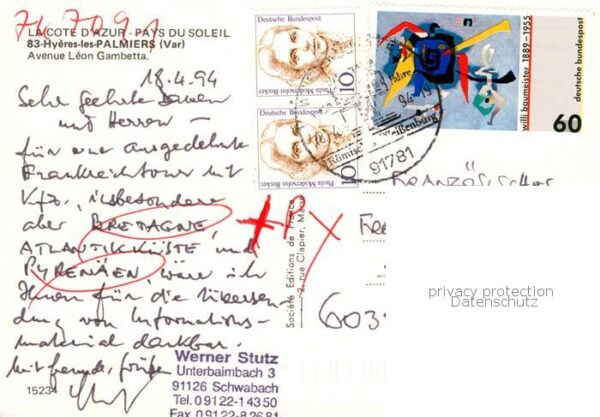 LA COTE D'AZUR - PAYS DU SOLEIL
83-Hyères-les-PALMIERS (Var)
Avenue Léon Gambetta.
18.4.94
Sehr geehrte Damen
und Herren -
für eine ausgedehnte
Frankreichtour mit
Kfz., insbesondere
aber BRETAGNE,
ATLANTIKKÜSTE und
PYRENÄEN, wäre ich
Ihnen für die Übersen-
dung von Informations-
material dankbar.
Mit freundl. Grüßen
15234
Werner Stutz
Unterbaimbach 3
91126 Schwabach
Tel.09122-14350
Fax 09122-82681
Société Editions de France
2, rue Clapier, Mars
Deutsche Bundespost
10
Paula Modersohn-Becker
Deutsche Bundespost
10
Paula Modersohn-Becker
willi baumeister 1889-1955
deutsche bundespost
60
Jahre
Weißenburg
91781
FRANZÖSISCHES
FR
603
privacy protection
Datenschutz